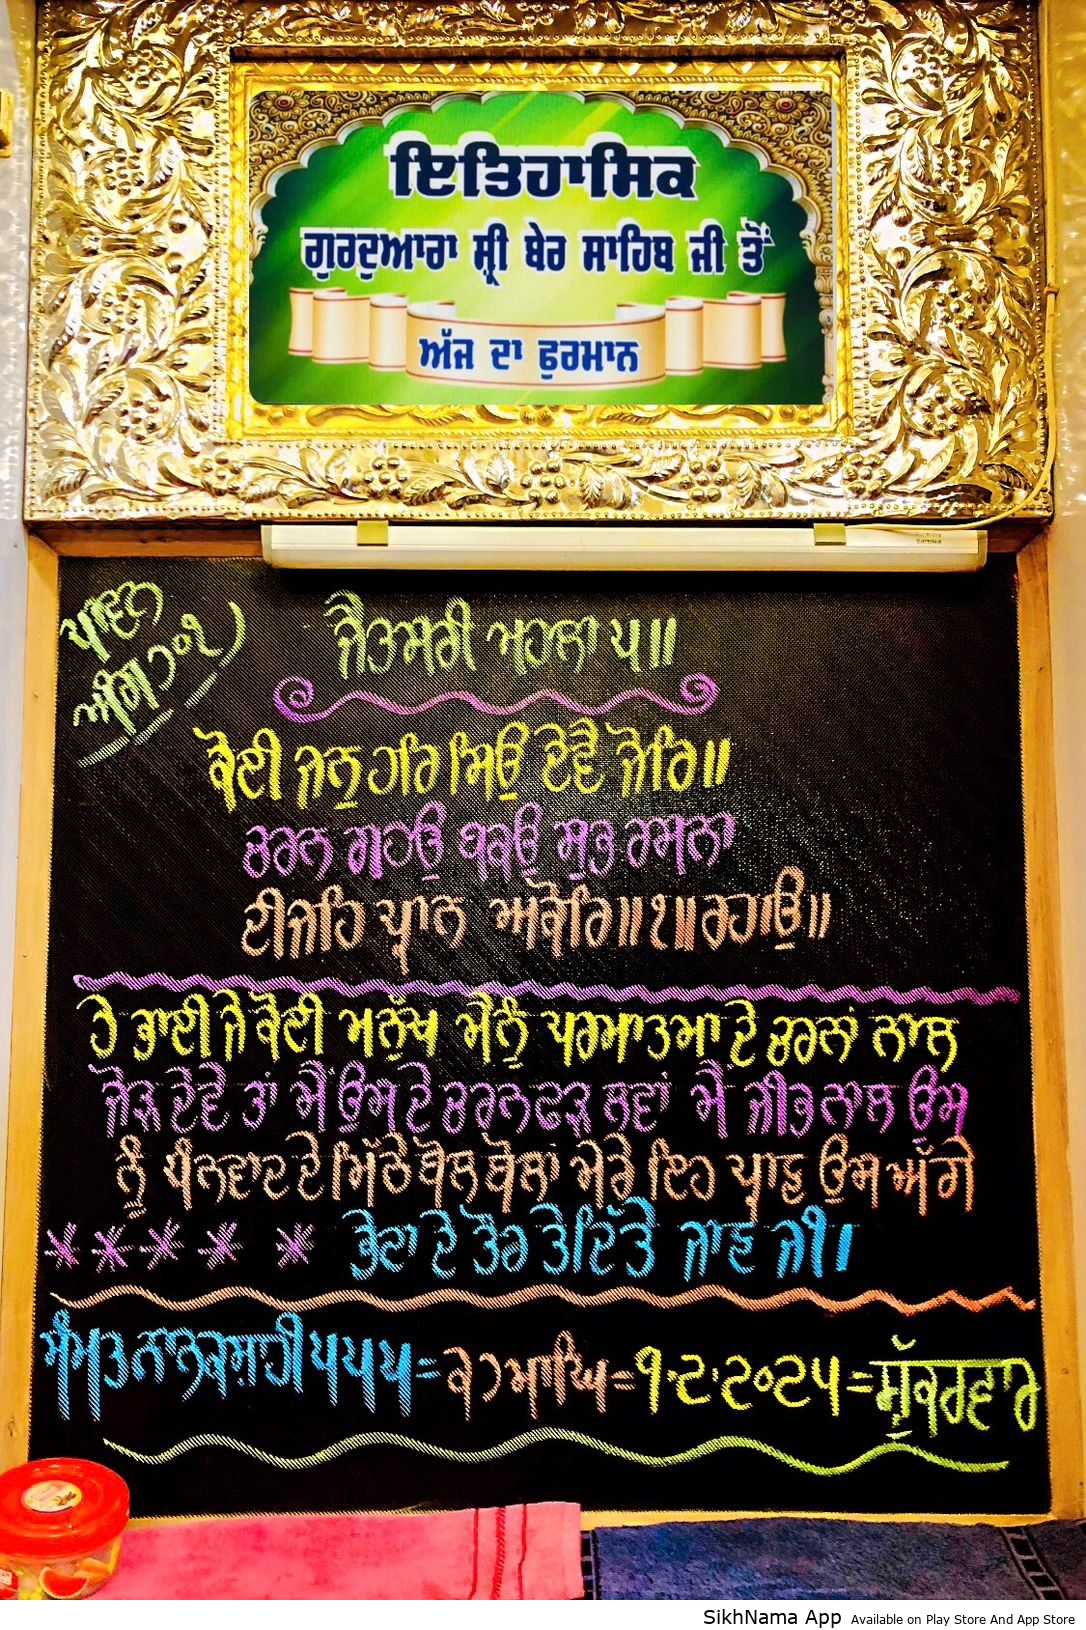 ਇਤਿਹਾਸਿਕ
ਗੁਰਦੁਆਰਾ ਸ਼੍ਰੀ ਬੇਰ ਸਾਹਿਬ ਜੀ ਤੋਂ
ਅੱਜ ਦਾ ਫੁਰਮਾਨ
ਪਾਵਨ
ਅੰਗ ੭੦੧)
ਜੈਤਸਰੀ ਮਹਲਾ ੫॥
ਕੋਈ ਜਨੁ ਹਰਿ ਸਿਉ ਦੇਵੈ ਜੋਰਿ॥
ਚਰਨ ਗਹਉ ਬਕਉ ਸੁਭ ਰਸਨਾ
ਦੀਜਹਿ ਪ੍ਰਾਨ ਅਕੋਰਿ॥੧॥ ਰਹਾਉ॥
ਹੇ ਭਾਈ ਜੇ ਕੋਈ ਮਨੁੱਖ ਮੈਨੂੰ ਪਰਮਾਤਮਾ ਦੇ ਚਰਨਾਂ ਨਾਲ
ਜੋੜ ਦੇਵੇ ਤਾਂ ਮੈਂ ਉਸ ਦੇ ਚਰਨ ਫੜ ਲਵਾਂ ਮੈਂ ਜੀਭ ਨਾਲ ਉਸ
ਨੂੰ ਧੰਨਵਾਦ ਦੇ ਮਿੱਠੇ ਬੋਲ ਬੋਲਾਂ ਮੇਰੇ ਇਹ ਪ੍ਰਾਣ ਉਸ ਅੱਗੇ
ਭੇਟਾ ਦੇ ਤੌਰ ਤੇ ਦਿੱਤੇ ਜਾਣ ਜੀ।
ਸੰਮਤ ਨਾਨਕਸ਼ਾਹੀ ੫੫੫ = ੨੭ ਮਾਘ = ੧.੨.੨੦੨੫ = ਸ਼ੁੱਕਰਵਾਰ
SikhNama App Available on Play Store And App Store